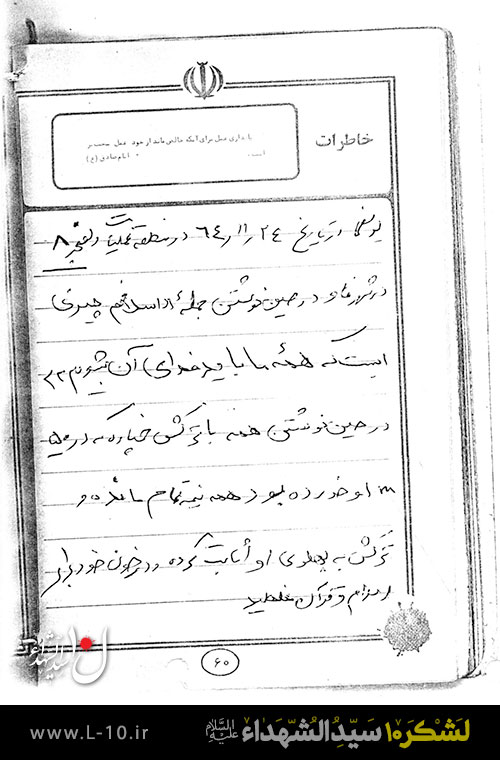 خاطرات
پایداری عمل برای اینکه خالص بماند از خود عمل سخت‌تر
است. امام صادق (ع)
در تاریخ ۲۴ ر ۱۱ ر ۶۴ در منطقه عملیات والفجر ۸
در شهر فاو در حین نوشتن جمله اسلام چیزی
است که همه ما باید فدای آن بشویم
در حین نوشتن همه با ترکش خمپاره که در
او خورده بود همه نیمه تمام مانده و
ترکش به پهلوی او اثابت کرده و در خون خود برای
اسلام و قرآن غلطید
۶۰
www.L-10.ir
لشکر۱۰ سیدالشهداء علیه‌السلام